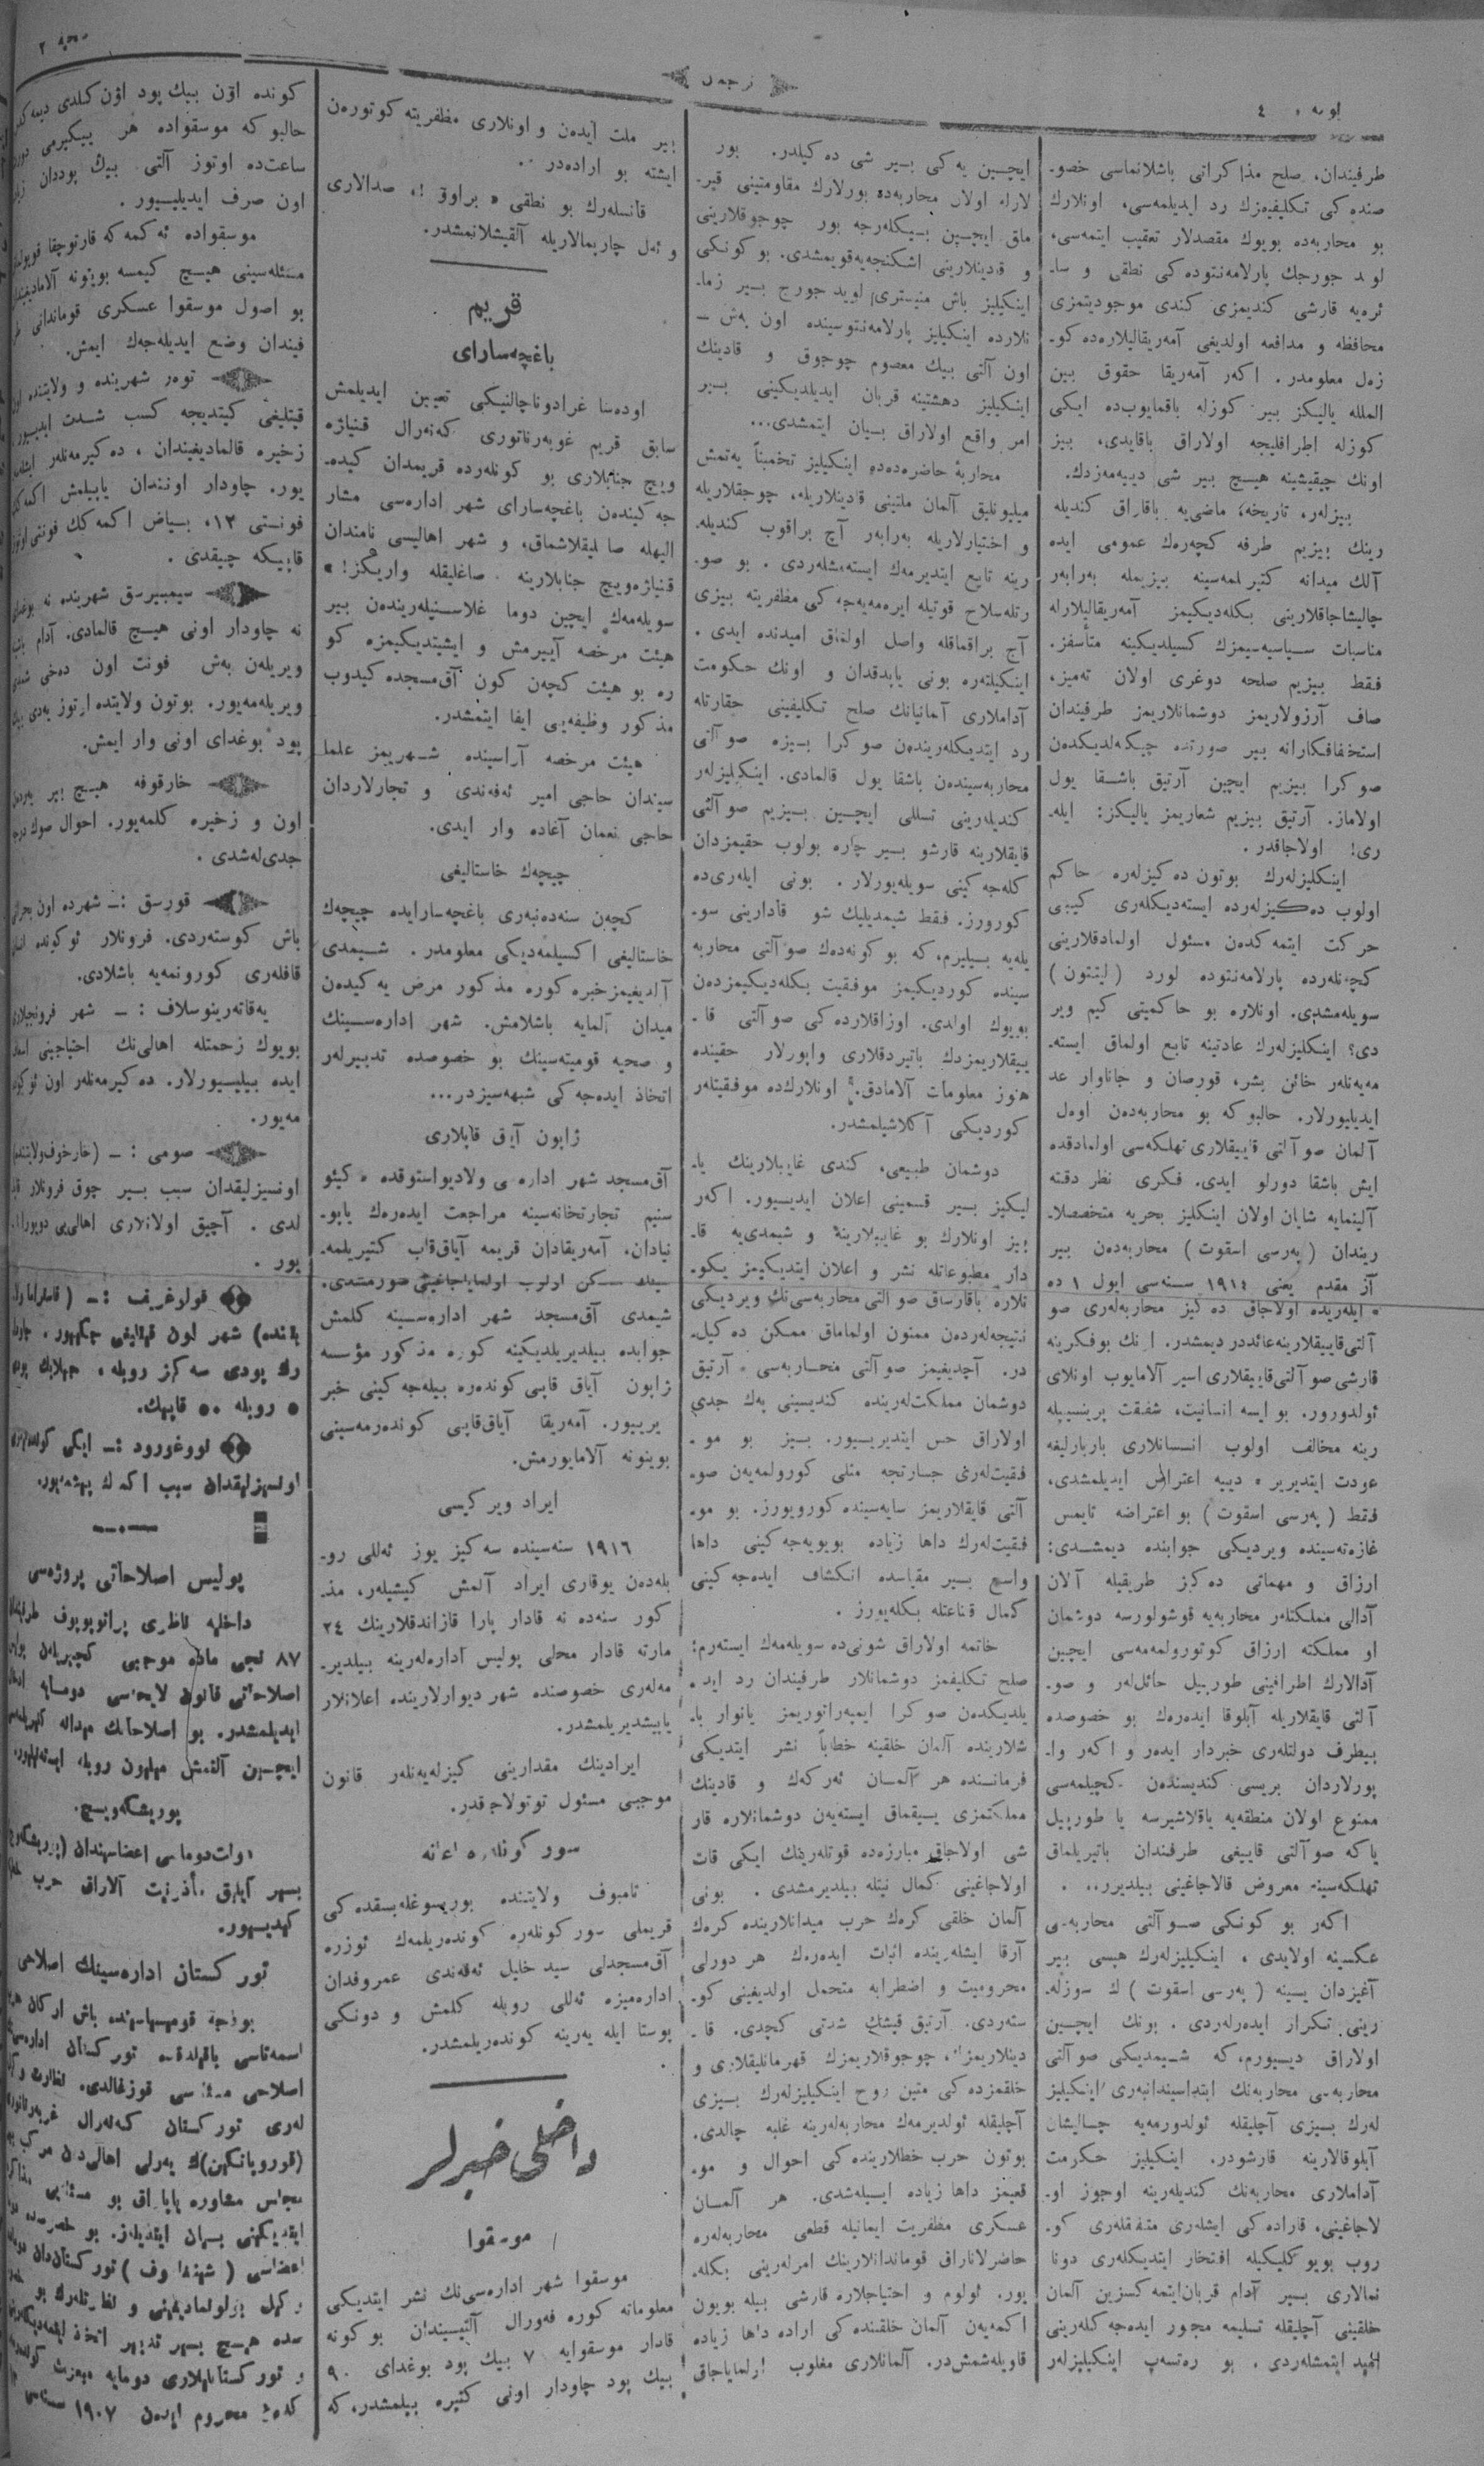 طرفیندان، صلح مذاکراتی باشلانماسی خصو-
صنده کی تکلیفمزك رد ایدیلمه‌سی، اونلارك
بو محاربه‌ده بویوك مقصدلار تعقیب ایتمه‌سی،
لو‌د جورجك پارلامه‌نتوده کی نطقی و سا-
ئره‌یه قارشی کندیمزی کندی موجودیتمزی
محافظه و مدافعه اولدیغی آمه‌ریقالیلاره‌ده کو-
زه‌ل معلومدر. اکه‌ر آمه‌ریقا حقوق بین
الملله یالیکز بیر کوزله باقمایوب‌ده ایکی
کوزله اطرافلیجه اولاراق باقایدی، بیز
اونك چیقیشینه هیچ بیر شی دییه‌مه‌زدك.
بیزلەر، تاریخه، ماضی‌یه باقاراق کندیله
رینك بیزیم طرفه کچه‌رك عمومی ایده
آلك میدانه کتیرلمه‌سینه بیزیمله به‌رابه‌ر
چالیشاجاقلارینی بکله‌دیکیمز آمه‌ریقالیلارله
مناسبات سیاسیه‌میزك کسیلدیکینه متأسفز.
فقط بیزیم صلحه دوغری اولان ته‌میز،
صاف آرزولاریمز دوشمانلاریمز طرفیندان
استخفافکارانه بیر صورتده چیکنه‌لدیکدەن
صوکرا بیزیم ایچین آرتیق باشقا یول
اولاماز. آرتیق بیزیم شعاریمز یالیکز: ایله-
ری! اولاجاقدر.
اینکلیزلەرك بوتون ده‌کیزلەره حاکم
اولوب ده‌کیزلەرده ایسته‌دیکلەری کیبی
حرکت ایتمه‌کدەن مسئول اولمادقلارینی
کچنلەرده پارلامه‌نتوده لورد (لیتتون)
سویله‌مشدی. اونلاره بو حاکمیتی کیم ویر
دی؟ اینکلیزلەرك عادتینه تابع اولماق ایسته-
مه‌یه‌نلەر خائن بشر، قورصان و جاناوار عد
ایدیلیورلار. حالبوکه بو محاربه‌دەن اوەل
آلمان صو آلتی قاییقلاری تهلکه‌سی اولمادقده
ایش باشقا دورلو ایدی. فکری نظر دقته
آلینمایه شایان اولان اینکلیز بحریه متخصصلا-
ریندان (پەرسی اسقوت) محاربه‌دەن بیر
آز مقدم یعنی ١٩١٤ سنه‌سی ایول ١ ده
« ایله‌ریده اولاجاق ده‌کیز محاربه‌لەری صو
آلتی قاییقلارینه‌عائددر دیمشدر. بوفکرینه
قارشی صو آلتی‌قاییقلاری اسیر آلامایوب اونلای
ئولدورور. بو ایسه انسانیت، شفقت پرنسیپله
رینه مخالف اولوب انسانلاری باربارلیغه
عودت ایتدیریر » دییه اعتراض ایدیلمشدی،
فقط (پەرسی اسقوت) بو اعتراضه تایمس
غازه‌ته‌سینده ویردیکی جوابنده دیمشدی:
ارزاق و مهماتی ده‌کز طریقیله آلان
آدالی مملکتلەر محاربه‌یه قوشولورسه دوشمان
او مملکته ارزاق کوتورولمه‌مه‌سی ایچین
آدالارك اطرافینی طورپیل حائللەر و صو-
آلتی قایقلاریله آبلوقا ایده‌رەك بو خصوصده
بیطرف دولتلەری خبردار ایدەر و اکه‌ر وا-
پورلاردان بریسی کندیسندەن کچیلمه‌سی
ممنوع اولان منطقه‌یه یاقلاشیرسه یا طورپیل
یاکه صوآلتی قاییغی طرفندان باتیریلماق
تهلکه‌سینه معروض قالاجاغینی بیلدیرر.. .
اکه‌ر بو کونکی صو آلتی محاربه‌سی
عکسینه اولایدی، اینکیلیزلەرك هپسی بیر
آغیزدان یسینه (پەرسی اسقوت) ك سوزله-
رینی تکرار ایده‌رلەردی. بونك ایچین
اولاراق دییورم،که شیمدیکی صو آلتی
محاربه‌سی محاربه‌نك ابتداسیندانبەری اینکیلیز
لەرك بیزی آچلیقله ئولدورمه‌یه چالیشان
آبلوقالارینه قارشودر. اینکیلیز حکومت
آداملاری محاربه‌نك کندیلەرینه اوجوز او-
لاجاغینی، قاراده کی ایشلەری متفقلەری کو-
روب بویوکلیکیله افتخار ایتدیکلەری دونا
نمالاری بیر آدام قربان‌ایتمه کسزین آلمان
خلقینی آچلیقله تسلیمه مجبور ایده‌جه کلەرینی
امید ایتمشلەردی. بو ره‌تسه‌پ اینکیلیزلەر
ایچین یه کی بیر شی ده‌کیلدر. بور
لارله اولان محاربه‌ده بورلارك مقاومتینی قیر-
ماق ایچین بیکلەرجه بور چوجوقلارینی
و قدینلارینی اشکنجه‌یه‌قویمشدی. بو کونکی
اینکیلیز باش منیستری لوید جورج بیر زما-
نلارده اینکیلیز پارلامه‌نتوسینده اون به‌ش —
اون آلتی بیك معصوم چوجوق و قادینك
اینکیلیز دهشتینه قربان ایدیلدیکینی بیر
امر واقع اولاراق بیان ایتمشدی...
محاربهٔ حاضره‌ده‌ده اینکیلیز تخمیناً یه‌تمش
میلیونلیق آلمان ملتینی قادینلاریله، چوجقلاریله
و اختیارلاریله به‌رابه‌ر آچ براقوب کندیله
رینه تابع ایتدیرمه‌ك ایسته‌مشلەردی. بو صو-
رتله‌سلاح قوتیله ایره‌مه‌یه‌جه کی مظفریته بیزی
آچ براقماقله واصل اولماق امیدنده ایدی.
اینکیلتەره بونی یاپدقدان و اونك حکومت
آداملاری آلمانیانك صلح تکلیفینی حقارتله
رد ایتدیکلەریندەن صوکرا بیزه صو آلتی
محاربه‌سیندەن باشقا یول قالمادی. اینکیلیزلەر
کندیلەرینی تسللی ایچین بیزیم صو آلتی
قایقلارینه قارشو بیر چاره بولوب حقیمزدان
کله‌جه کینی سویله‌یورلار. بونی ایله‌ری‌ده
کورورز. فقط شیمدیلیك شو قادارینی سو-
یله‌یه بیلیرم، که بو کونه‌ده‌ك صو آلتی محاربه
سینده کوردیکیمز موفقیت بکله‌دیکیمزدەن
بویوك اولدی. اوزاقلارده کی صو آلتی قا-
ییقلاریمزدك باتیردقلاری واپورلار حقینده
هنوز معلومات آلامادق. اونلارك‌ده موفقیتلەر
کوردیکی آکلاشیلمشدر.
دوشمان طبیعی، کندی غایبلارینك یا-
لیکیز بیر قسمینی اعلان ایدییور. اکه‌ر
بیز اونلارك بو غایبلارینهٔ و شیمدی‌یه قا-
دار مطبوعاتله نشر و اعلان ایتدیکیمز یکو-
نلاره باقارساق صو آلتی محاربه‌سی‌نك ویردیکی
نتیجه‌لەردەن ممنون اولماماق ممکن ده‌کیل-
در. آچدیغیمز صو آلتی محاربه‌سی آرتیق
دوشمان مملکت‌لەرینده کندیسینی یه‌ك جدی
اولاراق حس ایتدیرییور. بیز بو مو-
فقیت‌لەری جسارتجه مثلی کورولمه‌یه‌ن صو-
آلتی قایقلاریمز سایه‌سینده کورویورز. بو مو-
فقیت‌لەرك داها زیاده بویویه‌جه کینی داها
واسع بیر مقیاسده انکشاف ایده‌جه کینی
کمال قناعتله بکله‌یورز.
خاتمه اولاراق شونی‌ده سویله‌مه‌ك ایستەرم؛
صلح تکلیفمز دوشمانلار طرفیندان رد ایده
یلدیکدەن صوکرا ایمپه‌راتوریمز یانوار با-
شلارینده آلمان خلقینه خطاباً نشر ایتدیکی
فرماننده هر آلمان ئه‌رکه‌ك و قادینك
مملکتمزی ییقماق ایسته‌یه‌ن دوشمانلاره قار
شی اولاجاق مبارزه‌ده قوتلەرینك ایکی قات
اولاجاغینی کمال نیتله بیلدیرمشدی. بونی
آلمان خلقی کرەك حرب میدانلارینده کرەك
آرقا ایشلەرینده اثبات ایده‌رەك هر دورلی
محرومیت و اضطرابه متحمل اولدیغینی کو-
ستەردی. آرتیق قیشك شدتی کچدی. قا-
دینلاریمزك، چوجوقلاریمزك قهرمانلیقلاری و
خلقمزده کی متین روح اینکیلیزلەرك بیزی
آچلیقله ئولدیرمه‌ك محاربه‌لەرینه غلبه چالدی.
بوتون حرب خطلارینده کی احوال و مو-
قعیمز داها زیاده ایییله‌شدی. هر آلمان
عسکری مظفریت ایمانیله قطعی محاربه‌لەره
حاضرلاناراق قوماندانلارینك امرلەرینی بکله-
یور. ئولوم و احتیاجلاره قارشی بیله بویون
اکمه‌یه‌ن آلمان خلقنده کی اراده داها زیاده
قاویله‌شمش‌در. آلمانلاری مغلوب اولمایاجاق
بیر ملت ایدەن و اونلاری مظفریته کوتورەن
ایشته بو اراده‌در..
قانسلەرك بو نطقی « براوو !» صدالاری
و ئه‌ل چارپمالاریله آلقیشلانمشدر.
قریم
باغچه‌سارای
اوده‌سا غرادوناچالنیکی تعیین ایدیلمش
سابق قریم غوبه‌رناتوری که‌نه‌رال قنیاژه
ویچ جنابلاری بو کونلەرده قریمدان کیده-
جه کیندەن باغچه‌سارای شهر اداره‌سی مشار
الیهله صاغلیقلاشماق، و شهر اهالیسی نامندان
قنیاژه‌ویچ جنابلارینه «صاغلیقله واریکز!»
سویله‌مه‌ك ایچین دوما غلاسنیلەریندەن بیر
هیئت مرخصه آییرمش و ایشیتدیکیمزه کو
ره بو هیئت کچەن کون آق‌مسجده کیدوب
مذکور وظیفه‌یی ایفا ایتمشدر.
هیئت مرخصه آراسینده شهریمز علما
سیندان حاجی امیر ئه‌فه‌ندی و تجارلاردان
حاجی نعمان آغاده وار ایدی.
چیچه‌ك خاستالیغی
کچەن سنه‌ده‌نبەری باغچه‌سارایده چیچه‌ك
خاستالیغی اکسیلمه‌دیکی معلومدر. شیمدی
آلدیغیمز خبره کوره مذکور مرض یه کیدەن
میدان آلمایه باشلامش. شهر اداره‌سینك
و صحیه قومیته‌سینك بو خصوصده تدبیرلەر
اتخاذ ایده‌جه کی شبهه‌سیزدر...
ژاپون آیاق قاپلاری
آق‌مسجد شهر اداره‌سی ولادیواستوقده « کیئو
سنیم تجارتخانه‌سینه مراجعت ایده‌رەك یاپو-
نیادان، آمه‌ریقادان قریمه آیاق‌قاب کتیریلمه-
سینك ممکن اولوب اولمایاجاغینی صورمشدی.
شیمدی آق‌مسجد شهر اداره‌سینه کلمش
جوابده بیلدیریلدیکینه کوره مذکور مؤسسه
ژاپون آیاق قاپی کوندەره بیله‌جه کینی خبر
یرییور. آمه‌ریقا آیاق‌قاپی کوندەرمه‌سینی
بوینونه آلامایورمش.
ایراد ویرکیسی
١٩١٦ سنه‌سینده سه‌کیز یوز ئه‌للی رو-
بله‌دەن یوقاری ایراد آلمش کیشیلەر، مذ-
کور سنه‌ده نه قادار پارا قازاندقلارینك ٢٤
مارته قادار محلی پولیس اداره‌لەرینه بیلدیر-
مه‌لەری خصوصنده شهر دیوارلارینده اعلانلار
یاپیشدیریلمشدر.
ایرادینك مقدارینی کیزله‌یه‌نلەر قانون
موجبی مسئول توتولاجاقدر.
سورکونلره اعانه
تامبوف ولایتنده بوریسوغله‌بسقده کی
قریملی سورکونلەره کوندەریلمه‌ك ئوزره
آق‌مسجدلی سید خلیل ئه‌فه‌ندی عمروفدان
اداره‌میزه ئه‌للی روبله کلمش و دونکی
پوستا ایله یه‌رینه کوندەریلمشدر.
داخلی خبرلر
موسقوا
موسقوا شهر اداره‌سی‌نك نشر ایتدیکی
معلوماته کوره فه‌ورال آلتیسیندان بو کونه
قادار موسقوایه ٧ بیك پود بوغدای ٩٠
بیك پود چاودار اونی کتیره بیلمشدر، که
کونده اوۇن بیك پود اوۇن کلدی دیمه‌کدر
حالبوکه موسقواده هر ییکیرمی دورت
ساعت‌ده اوتوز آلتی بیك پوددان زیاده
اون صرف ایدیلییور.
موسقواده ئه‌کمه‌که قارتوچقا قویولماق
مسئله‌سینی هیچ کیمسه بوینونه آلامادیغیندان
بو اصول موسقوا عسکری قوماندانی طر
فیندان وضع ایدیله‌جه‌ك ایمش.
توەر شهرینده و ولایتنده اون
قیتلیغی کیتدیجه کسب شدت ایدییور.
زخیره قالمادیغیندان، ده‌کیرمه‌نلەر ایشله‌مه
یور. چاودار اونندان یاپیلمش اکمه‌کك
فونتی ١٢، بیاض اکمه‌کك فونتی اوتوز
قاپیکه چیقدی.
سیمبیرسق شهرینده نه بوغدای
نه چاودار اونی هیچ قالمادی. آدام باشینه
ویریلەن به‌ش فونت اون دەخی شیمدی
ویریله‌مه‌یور. بوتون ولایتده اوتوز یه‌دی بیك
پود بوغدای اونی وار ایمش.
خارقوفه هیچ بیر یه‌ردەن
اون و زخیره کلمه‌یور. احوال صوك درجه
جدی‌له‌شدی.
قورسق :— شهرده اون بحرانی
باش کوستەردی. فرونلار ئوکونده انسان
قافله‌لەری کورونمه‌یه باشلادی.
یه‌قاته‌رینوسلاف :— شهر فرونجیلاری
بویوك زحمتله اهالی‌نك احتیاجینی اسعاف
ایده بیلییورلار. ده‌کیرمه‌نلەر اون ئوکوده
مه‌یور.
صومی :— (خارخوف‌ولایتنده)
اونسیزلیقدان سبب بیر چوق فرونلار قاپا
لدی. آچیق اولانلاری اهالی‌یی دویورا ما
یور.
قولاغریف :— (
یاننده) شهر اون قیتلیغی چکییور. چاودا
رك پودی سه‌کز روبله،
٥ روبله ٥٠ قاپیك.
نووغورود :— ایکی کوندەنبەری
اونسیزلیقدان سبب اکمه‌ك پیشمه‌یور.
پولیس اصلاحاتی پروژه‌سی
داخلیه ناظری پراتوپوپوف طرفیندان
٨٧ نجی ماده موجبی کچیریلەن پولیس
اصلاحاتی قانون لایحه‌سی دومایه ادخال
ایدیلمشدر. بو اصلاحاتك میدانه کتیریلمه‌سی
ایچین آلتمش میلیون روبله ایسته‌نیلیور.
پوریشکه‌ویچ.
دوات‌دوماسی اعضاسیندان (پوریشکه‌ویچ)
بیر آیلیق مأذونیت آلاراق حرب
کیدییور.
تورکستان اداره‌سینك اصلاحی
بودجه قومیسیاسینده باش ارکان حربیه
اسمه‌تاسی باقیلدقده تورکستان اداره‌سی‌نك
اصلاحی مسئله‌سی قوزغالدی. نظارت و
لەری تورکستان که‌نه‌رال غوبه‌رناتوری
(قوروپاتکین)ك یه‌رلی اهالی‌دەن مرکب بیر
مجلس مشاوره یاپاراق بو مسئله‌یی مذاکره
ایتدیکینی بیان ایتدیلەر. بو خصوصده دوما
اعضاسی (شینغاروف) تورکستان‌دان دومایه
وکیل بولونمادیغینی و نظارتلەرك بو
سده هیچ بیر تدبیر اتخاذ ایتمه‌دیکلەرینی
و تورکستانلیلاری دومایه مبعوث کوندەر
مکدەن محروم ایدەن ١٩٠٧ سنه‌سی